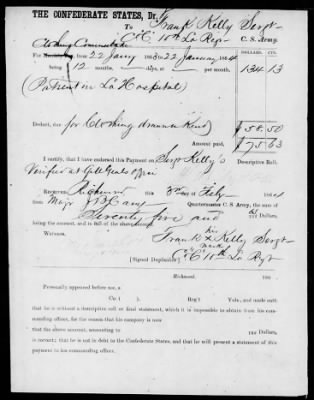 THE CONFEDERATE STATES, Dr.
To Frank Kelly Sergt
Co "C" 10th La Regt C. S. Army.
Clothing Commutation
DOLLARS. CTS.
For from 22 Jany 1863 to 22 January 1864
being 12 months, days, at per month, 134 13
(Patient in La Hospital)
Deduct, due for Clothing drawn in Kind $ 58.50
Amount paid, $ 75 63
I certify, that I have endorsed this Payment on Sergt Kelly's Descriptive Roll.
Verified at Genls Office
RECEIVED, Richmond this 3rd of Feby 1864
from Major J B Cary Quartermaster C. S. Army, the sum of
Seventy five and 63/100 Dollars,
being the amount, and in full of the above account.
WITNESS, Frank his x mark Kelly Sergt
[Signed Duplicates] Co "C" 10th La Regt
Richmond 186
Personally appeared before me, a
Co ( ), Reg't Vols., and made oath
that he is without a descriptive roll or final statement, which it is impossible to obtain from his com-
manding officer, for the reason that his company is now
that the above account, amounting to /100 Dollars,
is correct; that he is not in debt to the Confederate States, and that he will present a statement of this
payment to his commanding officer.